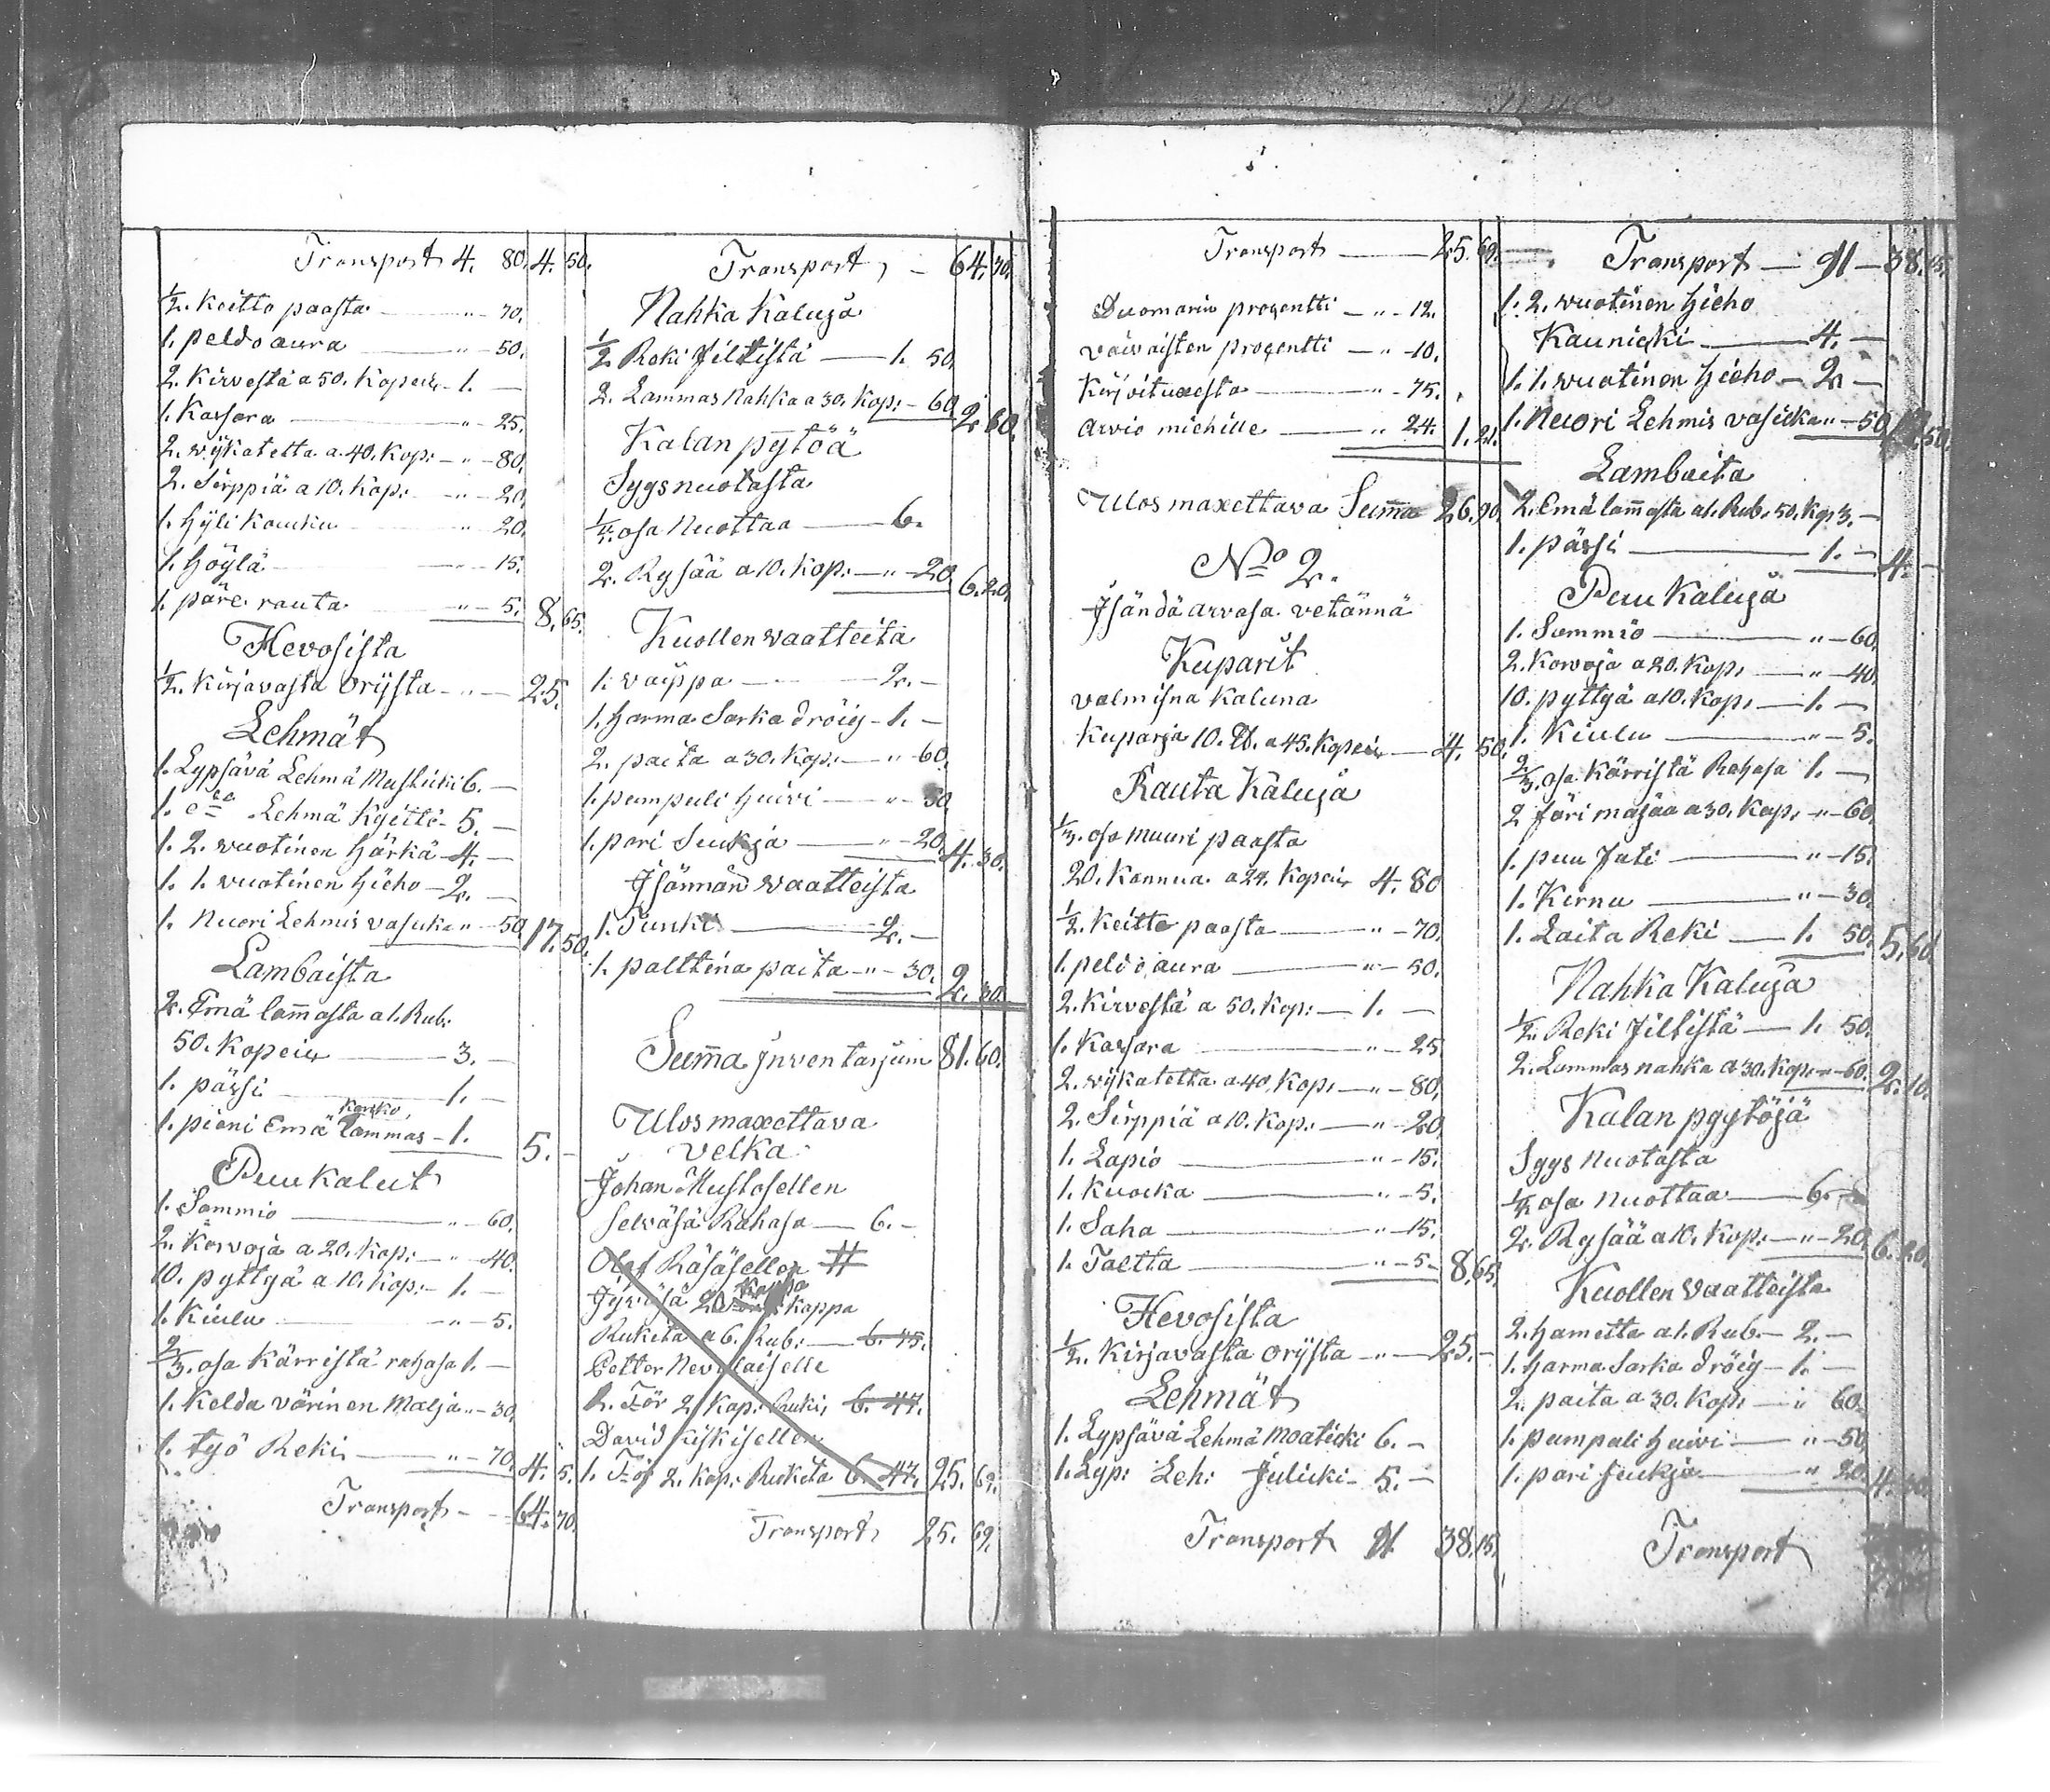 Transport 4. 80. 4. 50.
1/2. Keitto paasta — " — 70.
1. peldo aura — " — 50.
2. Kirvestä a 50. Kopeik — 1. —
1. Kassara — " — 25.
2. wijkatetta a. 40. Kop: — " — 80.
2. Sirppiä a 10. Kop: — " — 20.
1. Hyli Kouku — " — 20.
1. Höylä — " — 15.
1. päre rauta — " — 5. 8. 65.
Hevosista
1/2. Kirjavasta Orijsta — " — 25.
Lehmät
1. Lypsävä Lehmä Mustikki 6. —
1. Lehmä Kyittö — 5. —
1. 2. wuotinen Härkä — 4. —
1. 1. wuotinen Hieho — 2. —
1. Nuori Lehmis vasikka " — 50. 17. 50.
Lambaista
2. Emä lam̄asta a 1. Rub:
50. Kopeik — 3. —
1. pässi — 1. —
1. pieni Emä karsko lammas — 1. 5. —
Puukalut
1. Sammio — " — 60.
2. Korvoja a 20. Kop: — " — 40.
10. pyttyä a 10. Kop: — 1. —
1. Kiulu — " — 5.
2/3. osa Kärristä rahasa 1. —
1. Kelda värinen Malja " — 30.
1. työ Reki — " — 70. 4. 5.
Transport — 64. 70.
Transport, — 64. 70.
Nahka Kaluja
1/2 Reki Jiltistä — 1. 50.
2. Lammas Nahka a 30. Kop: — 60. 2. 60.
Kalan pytöä
Sygsnuotasta
1/4. osa Nuottaa — 6.
2. Rysää a 10. Kop: — " — 20. 6. 20.
Kuollen waatteita
1. vaippa — 2. —
1. Harma Sarka Dröig — 1. —
2. paita a 30. Kop: — " — 60.
1. pumpuli Huivi — " — 50
1. pari Sukja — " — 20. 4. 30.
Jsännän waatteista
1. Turki — 2. —
1. palttina paita — " — 30. 2. 30.
Sum̄a Jnventarjum 81. 60.
Ulosmaxettava
velka
Johan Mustosellen
selväsä Rahasa — 6. —
Olof Räsäsellen #
Jywäsä 20 kappa
Rukita a 6. Rub: — 6. 45.
Petter Nevalaiselle
1. Tör 2 Kap: Rukis, 6. 47.
David Kiskisellen
1. Tör 2. Kap: Rukita 6. 47. 25. 69.
Transport 25. 69.
Transport — 25. 69.
Duomarin progentti — " — 12.
väivaisten progentti — " — 10.
Kirjoituxesta — " — 75.
Arvio miehille — " 24. 1. 21.
Ulos maxettava Sum̄a 26. 90.
No 2.
Jsändä arvasa vetännä
Kuparit
valmisna Kaluna
Kuparja 10. ℔. a 45. Kopeik — 4. 50.
Rauta Kaluja
1/3. osa Muuri paasta
20. Kannua a 24. Kopeik 4. 80
1/2. Keitto paasta — " — 70.
1. peldo aura — " — 50.
2. Kirvestä a 50. Kop: — 1. —
1. Kassara — " — 25
2. wijkatetta a 40. Kop: — " — 80.
2. Sirppiä a 10. Kop: — " — 20
1. Lapio — " — 15.
1. Kuocka — " — 5.
1. Saha — " — 15.
1. Taltta — " — 5. 8. 65.
Hevosista
1/2. Kirjavasta Orijsta — " — 25. —
Lehmät
1. Lypsävä Lehmä Moaticki 6. —
1. Lyp: Leh: Julicki — 5. —
Transport 11. 38. 15.
Transport — 11 — 38. 15.
1. 2. wuotinen Hieho
Kaunicki — 4. —
1. 1. wuotinen Hieho — 2. —
1. Nuori Lehmis vasikka " — 50. 17. 50.
Lambaita
2. Emä lam̄asta a 1. Rub. 50. Kop 3. —
1. pässi — 1. — 4. —
Puu Kaluja
1. Sammio — " — 60.
2. Korvoja a 20. Kop: — " — 40.
10. pyttyä a 10. Kop: — 1. —
1. Kiulu — " — 5.
2/3. osa Kärristä Rahasa 1. —
2 Järi maljaa a 30. Kop: — " — 60.
1. puu Fati — " — 15.
1. Kirnu — " — 30.
1. Laita Reki — 1. 50. 5. 60.
Nahka Kaluja
1/2. Reki Jiltistä — 1. 50.
2. Lammas nahka a 30. Kop: — " — 60. 2. 10.
Kalan pyytöjä
Sygs Nuotasta
1/4 osa Nuottaa — 6. —
2. Rysää a 10. Kop: — " — 20. 6. 20.
Kuollen Vaatteista
2. Hametta a 1. Rub. — 2. —
1. Harma Sarka Dröig — 1. —
2. paita a 30. Kop: — " 60.
1. pumpuli Huivi — " — 50.
1. pari sukja — " 20. 4. 30.
Transport